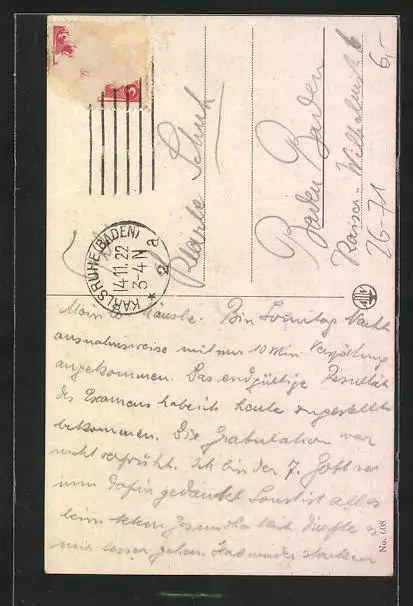 KARLSRUHE (BADEN)
14.11.22
3-4 N
* 2 a
Schuh
Baden Baden
Kaiser-Wilhelmstr. 6
26-71
6,-
Mein lb. Mäusle. Bin Sonntag Nacht
ausnahmsweise mit nur 10 Min Verspätung
angekommen. Das endgültige Resultat
des Examens habe ich heute zugestellt
bekommen. Die Gratulation war
nicht verfrüht. Ich bin der 7. Gott sei
nun dafür gedankt. Sonst ist alles
beim Gesundheitlich dürfte es
mir besser gehen. Hab wieder starken
No. 608